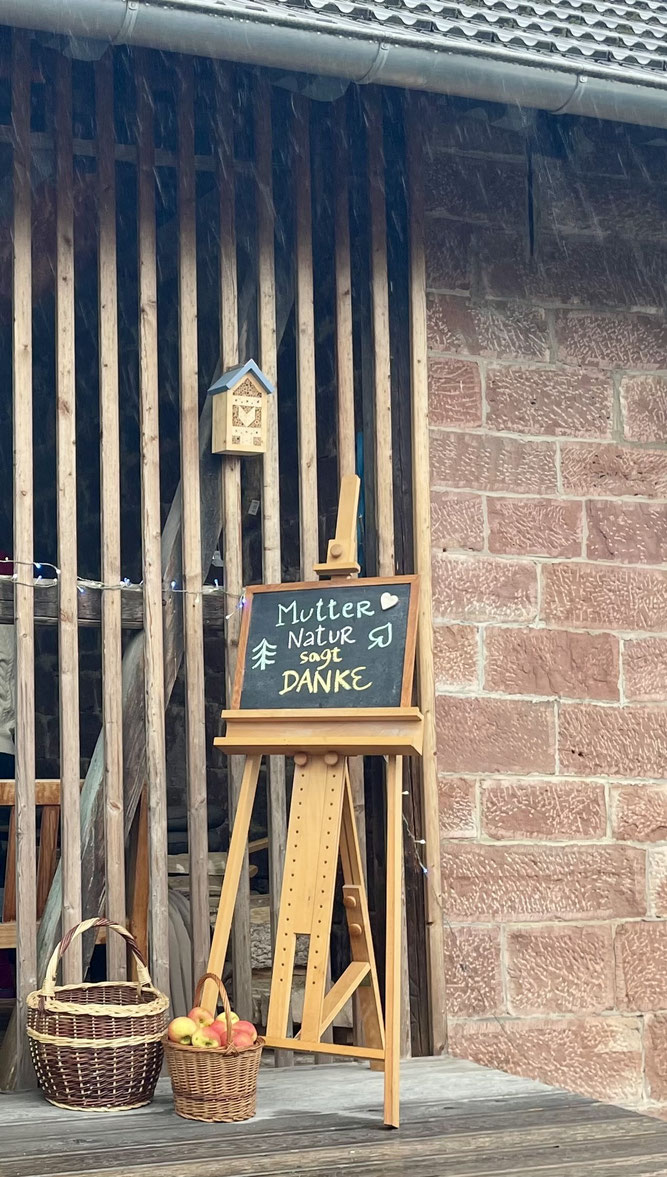 Mutter
Natur
sagt
DANKE